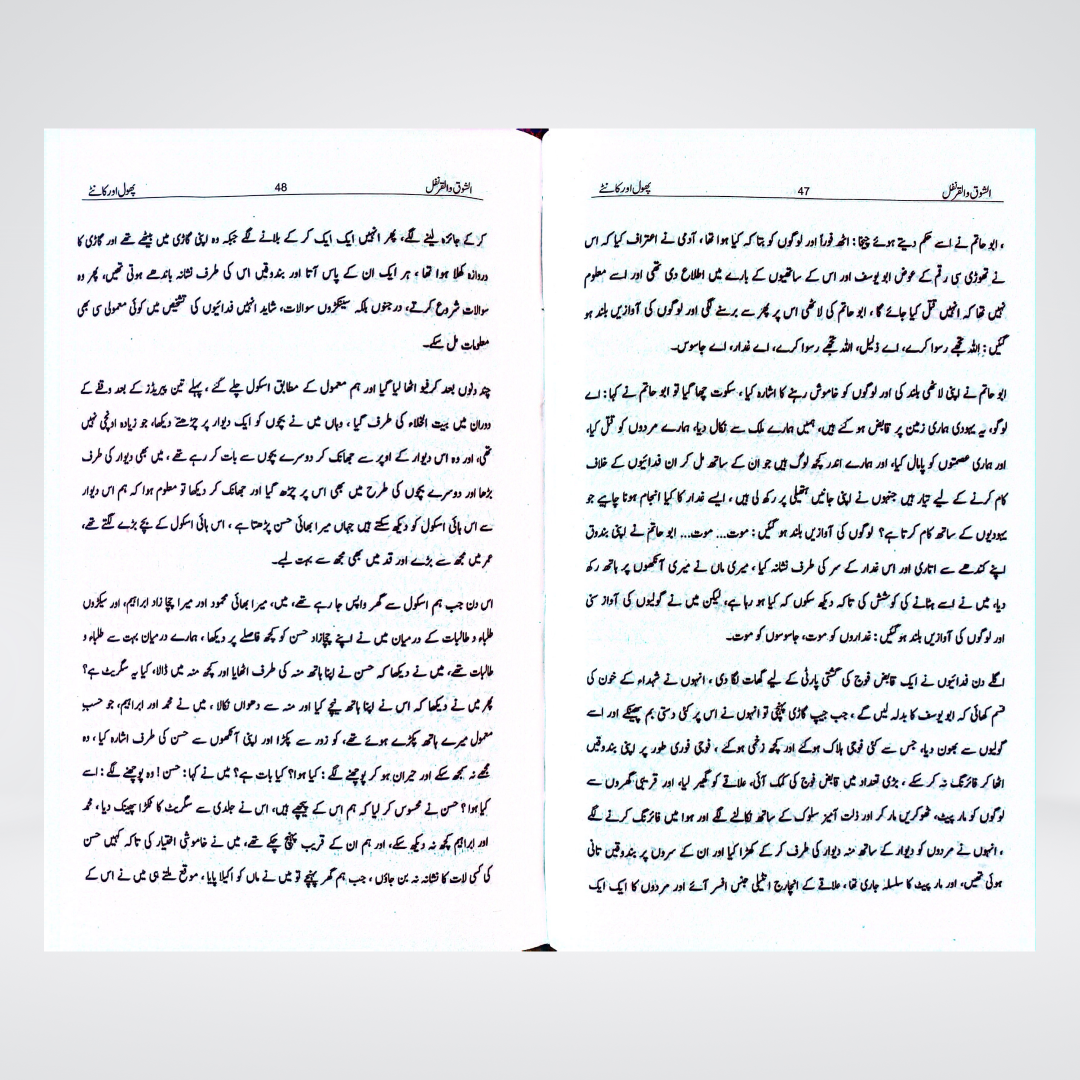 الشوق والقرنفل 47 پھول اور کانٹے
، ابو حاتم نے اسے حکم دیتے ہوئے چیخا: اٹھ فوراً اور لوگوں کو بتا کہ کیا ہوا تھا، آدمی نے اعتراف کیا کہ اس
نے تھوڑی سی رقم کے عوض ابو یوسف اور اس کے ساتھیوں کے بارے میں اطلاع دی تھی اور اسے معلوم
نہیں تھا کہ انہیں قتل کیا جائے گا، ابو حاتم کی لاٹھی اس پر پھر سے برسنے لگی اور لوگوں کی آوازیں بلند ہو
گئیں: اللہ تجھے رسوا کرے، اے ذلیل، اللہ تجھے رسوا کرے، اے غدار، اے جاسوس۔
ابو حاتم نے اپنی لاٹھی بلند کی اور لوگوں کو خاموش رہنے کا اشارہ کیا، سکوت چھا گیا تو ابو حاتم نے کہا: اے
لوگو، یہ یہودی ہماری زمین پر قابض ہو گئے ہیں، ہمیں ہمارے ملک سے نکال دیا، ہمارے مردوں کو قتل کیا،
اور ہماری عصمتوں کو پامال کیا، اور ہمارے اندر کچھ لوگ ہیں جو ان کے ساتھ مل کر ان فدائیوں کے خلاف
کام کرنے کے لیے تیار ہیں جنہوں نے اپنی جانیں ہتھیلی پر رکھ لی ہیں، ایسے غدار کا کیا انجام ہونا چاہیے جو
یہودیوں کے ساتھ کام کرتا ہے؟ لوگوں کی آوازیں بلند ہو گئیں: موت... موت... ابو حاتم نے اپنی بندوق
اپنے کندھے سے اتاری اور اس غدار کے سر کی طرف نشانہ کیا، میری ماں نے میری آنکھوں پر ہاتھ رکھ
دیا، میں نے اسے ہٹانے کی کوشش کی تاکہ دیکھ سکوں کہ کیا ہو رہا ہے، لیکن میں نے گولیوں کی آواز سنی
اور لوگوں کی آوازیں بلند ہو گئیں: غداروں کو موت، جاسوسوں کو موت۔
اگلے دن فدائیوں نے ایک قابض فوج کی گشتی پارٹی کے لیے گھات لگا دی، انہوں نے شہداء کے خون کی
قسم کھائی کہ ابو یوسف کا بدلہ لیں گے، جب جیپ گاڑی پہنچی تو انہوں نے اس پر کئی دستی بم پھینکے اور اسے
گولیوں سے بھون دیا، جس سے کئی فوجی ہلاک ہوگئے اور کچھ زخمی ہوگئے، فوجی فوری طور پر اپنی بندوقیں
اٹھا کر فائرنگ نہ کر سکے، بڑی تعداد میں قابض فوج کی کمک آئی، علاقے کو گھیر لیا، اور قریبی گھروں سے
لوگوں کو مار پیٹ، ٹھوکریں مار کر اور ذلت آمیز سلوک کے ساتھ نکالنے لگے اور ہوا میں فائرنگ کرنے لگے
، انہوں نے مردوں کو دیوار کے ساتھ منہ دیوار کی طرف کر کے کھڑا کیا اور ان کے سروں پر بندوقیں تانی
ہوئی تھیں، اور مار پیٹ کا سلسلہ جاری تھا، علاقے کے انچارج انٹیلی جنس افسر آئے اور مردوں کا ایک ایک
الشوق والقرنفل 48 پھول اور کانٹے
کر کے جائزہ لینے لگے، پھر انہیں ایک ایک کر کے بلانے لگے جبکہ وہ اپنی گاڑی میں بیٹھے تھے اور گاڑی کا
دروازہ کھلا ہوا تھا، ہر ایک ان کے پاس آتا اور بندوقیں اس کی طرف نشانہ باندھے ہوتی تھیں، پھر وہ
سوالات شروع کرتے، درجنوں بلکہ سینکڑوں سوالات، شاید انہیں فدائیوں کی تشخیص میں کوئی معمولی سی بھی
معلومات مل سکے۔
چند دنوں بعد کرفیو اٹھا لیا گیا اور ہم معمول کے مطابق اسکول چلے گئے، پہلے تین پیریڈز کے بعد وقفے کے
دوران میں بیت الخلاء کی طرف گیا، وہاں میں نے بچوں کو ایک دیوار پر چڑھتے دیکھا، جو زیادہ اونچی نہیں
تھی، اور وہ اس دیوار کے اوپر سے جھانک کر دوسرے بچوں سے بات کر رہے تھے، میں بھی دیوار کی طرف
بڑھا اور دوسرے بچوں کی طرح میں بھی اس پر چڑھ گیا اور جھانک کر دیکھا تو معلوم ہوا کہ ہم اس دیوار
سے اس ہائی اسکول کو دیکھ سکتے ہیں جہاں میرا بھائی حسن پڑھتا ہے، اس ہائی اسکول کے بچے بڑے لگتے تھے،
عمر میں مجھ سے بڑے اور قد میں بھی مجھ سے بہت لمبے۔
اس دن جب ہم اسکول سے گھر واپس جا رہے تھے، میں، میرا بھائی محمود اور میرا چچا زاد ابراہیم، اور سیکڑوں
طلباء و طالبات کے درمیان میں نے اپنے چچازاد حسن کو کچھ فاصلے پر دیکھا، ہمارے درمیان بہت سے طلباء و
طالبات تھے، میں نے دیکھا کہ حسن نے اپنا ہاتھ منہ کی طرف اٹھایا اور کچھ منہ میں ڈالا، کیا یہ سگریٹ ہے؟
پھر میں نے دیکھا کہ اس نے اپنا ہاتھ نیچے کیا اور منہ سے دھواں نکالا، میں نے محمد اور ابراہیم، جو حسب
معمول میرے ہاتھ پکڑے ہوئے تھے، کو زور سے پکڑا اور اپنی آنکھوں سے حسن کی طرف اشارہ کیا، وہ
مجھے نہ سمجھ سکے اور حیران ہو کر پوچھنے لگے: کیا ہوا؟ کیا بات ہے؟ میں نے کہا: حسن! وہ پوچھنے لگے: اسے
کیا ہوا؟ حسن نے محسوس کر لیا کہ ہم اس کے پیچھے ہیں، اس نے جلدی سے سگریٹ کا ٹکڑا پھینک دیا، محمد
اور ابراہیم کچھ نہ دیکھ سکے، اور ہم ان کے قریب پہنچ چکے تھے، میں نے خاموشی اختیار کی تاکہ کہیں حسن
کی کسی لات کا نشانہ نہ بن جاؤں، جب ہم گھر پہنچے تو میں نے ماں کو اکیلا پایا، موقع ملتے ہی میں نے اس کے